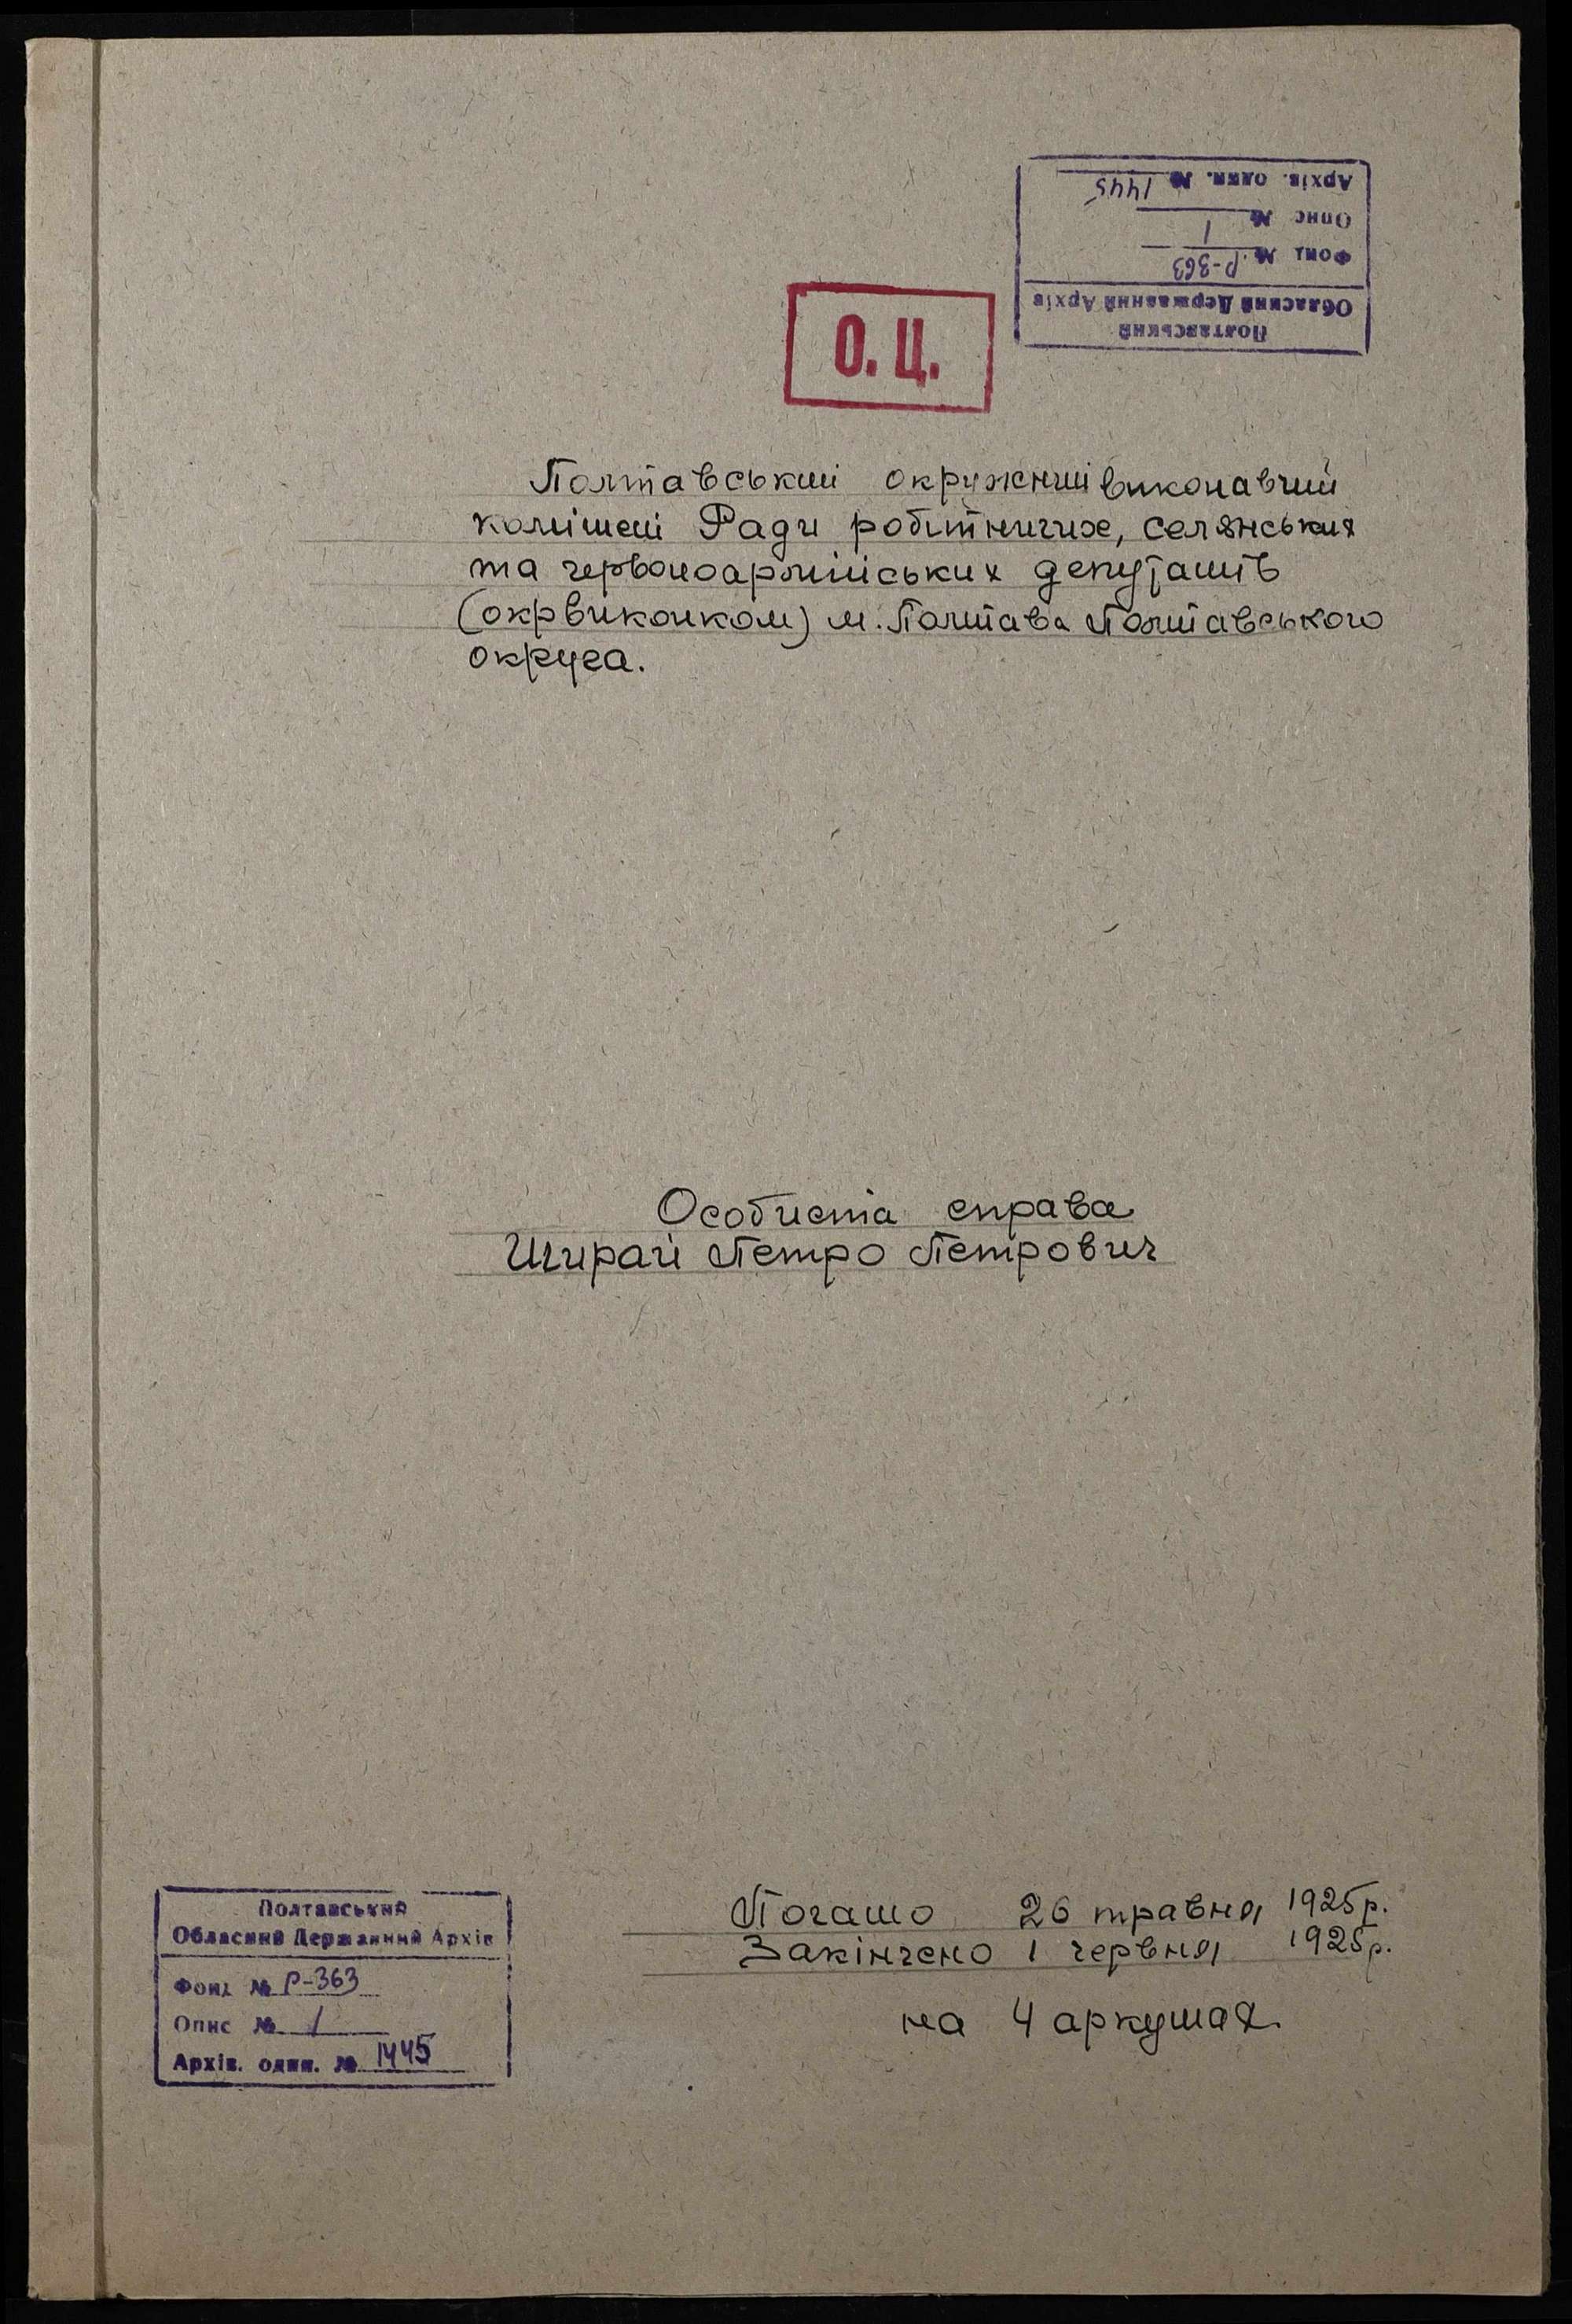 Полтавський
Обласний Державний Архів
Фонд № Р-363
Опис № 1
Архів. один. № 1445
О. Ц.
Полтавський окружний виконавчий
комітет Ради робітничих, селянських
та червоноармійських депутатів
(окрвиконком) м. Полтава Полтавського
округа.
Особиста справа
Ширай Петро Петрович
Почато 26 травня 1925р.
Закінчено 1 червня 1925р.
на 4 аркушах.
Полтавський
Обласний Державний Архів
Фонд № Р-363
Опис № 1
Архів. один. № 1445